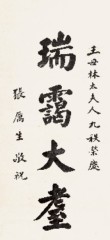 王母林太夫人九秩榮慶
瑞靄大耋
張厲生敬祝